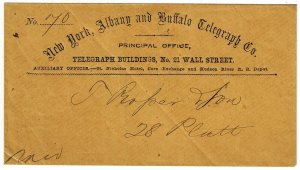 No. 70.
New York, Albany and Buffalo Telegraph Co.
PRINCIPAL OFFICE,
TELEGRAPH BUILDINGS, No. 21 WALL STREET.
AUXILIARY OFFICES.—St. Nicholas Hotel, Corn Exchange and Hudson River R. R. Depot.
T & Son
28 Platt